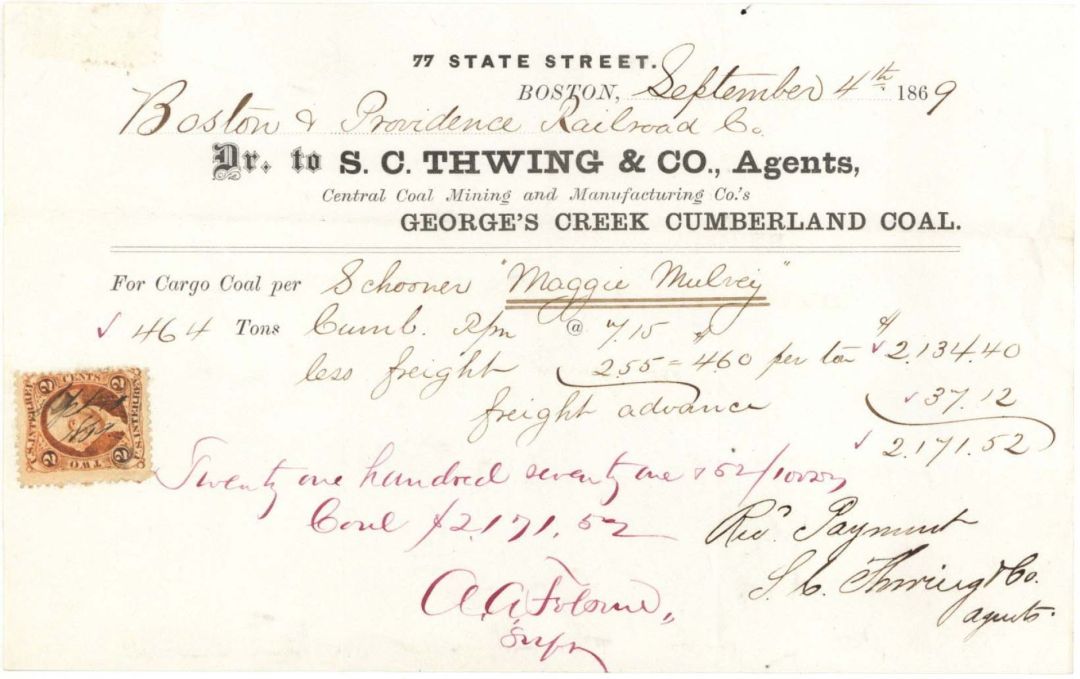 77 STATE STREET.
BOSTON, September 4th 1869
Boston & Providence Railroad Co.
Dr. to S. C. THWING & CO., Agents,
Central Coal Mining and Manufacturing Co.'s
GEORGE'S CREEK CUMBERLAND COAL.
For Cargo Coal per Schooner "Maggie Mulvey"
464 Tons Cumb. @ 7.15
less freight 2.55 = $4.60 per ton $2,134.40
freight advance 37.12
2,171.52
Twenty one hundred seventy one & 52/100
Coal $2,171.52
Rec'd Payment
S. C. Thwing & Co.
agents.
A. A. Folsom,
Supt
2 CENTS 2
U.S. INTER. REV.
2 TWO 2